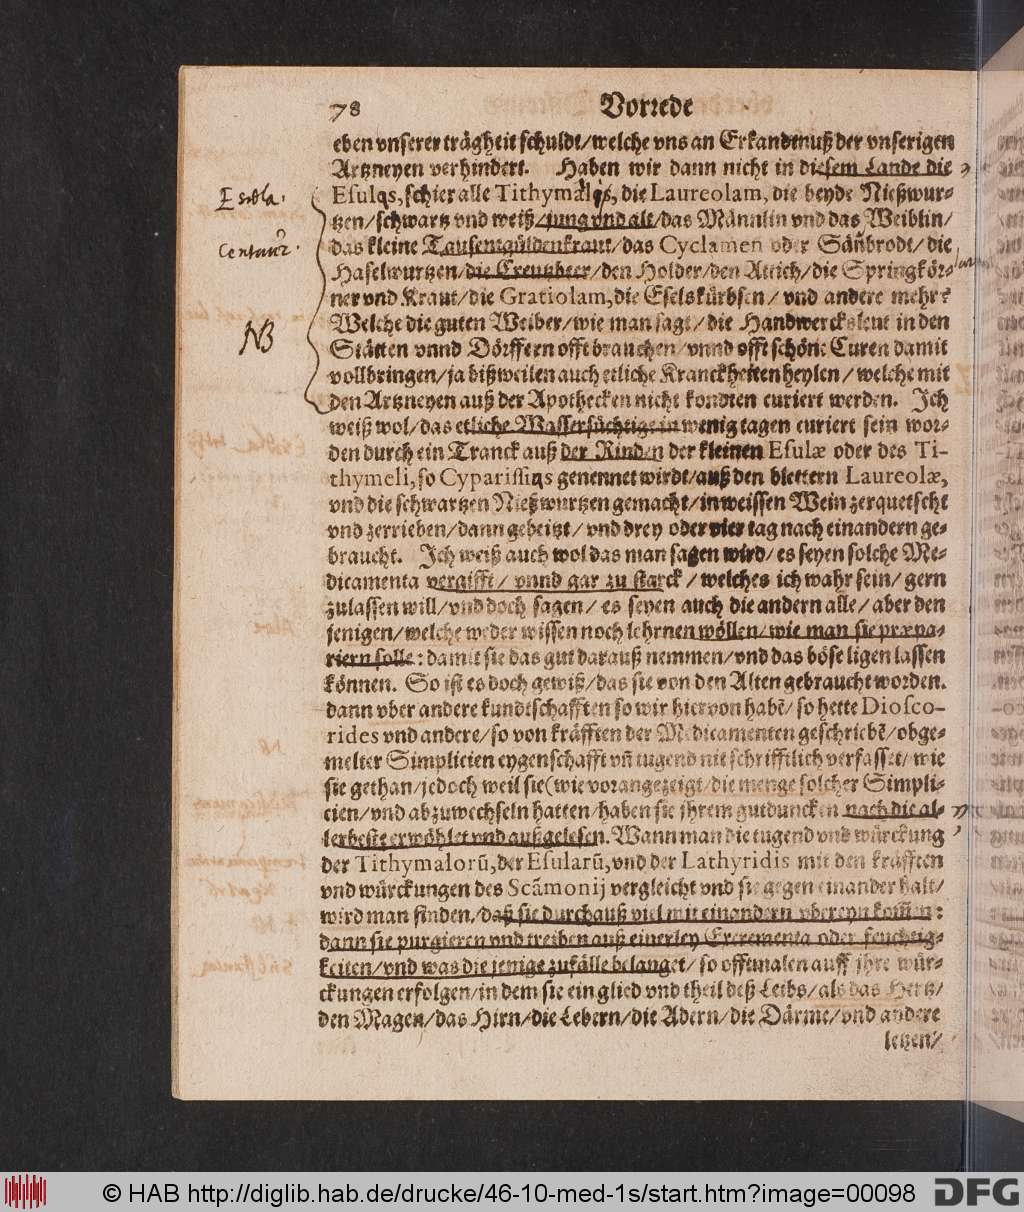 78 Vorrede
eben vnserer trägheit schuldt/welche vns an Erkandtnuß der vnserigen
Artzneyen verhindert. Haben wir dann nicht in diesem Lande die
Esula.
Esulas, schier alle Tithymalos, die Laureolam, die beyde Nießwur-
tzen/schwartz vnd weiß/jung vnd alt/das Männlin vnd das Weiblin/
Centaur.
das kleine Tausentgüldenkraut/das Cyclamen oder Säũbrodt/die
Haselwurtzen/die Creutzbeer/den Holder/den Attich/die Springkör-
ner vnd Kraut/die Gratiolam, die Eselskürbsen/ vnd andere mehr?
NB
Welche die guten Weiber/wie man sagt/die Handwercksleut in den
Stätten vnnd Dörffern offt brauchen/vnnd offt schöne Curen damit
vollbringen/ja bißweilen auch etliche Kranckheiten heylen/welche mit
den Artzneyen auß der Apothecken nicht kondten curiert werden. Ich
weiß wol/das etliche Wassersüchtige in wenig tagen curiert sein wor-
den durch ein Tranck auß der Rinden der kleinen Esulæ oder des Ti-
thymeli, so Cyparissias genennet wirdt/auß den blettern Laureolæ,
vnd die schwartzen Nießwurtzen gemacht/in weissen Wein zerquetscht
vnd zerrieben/dann gebeitzt/vnd drey oder vier tag nach einandern ge-
braucht. Ich weiß auch wol das man sagen wird/es seyen solche Me-
dicamenta vergifft/ vnnd gar zu starck/welches ich wahr sein/gern
zulassen will/vnd doch sagen/ es seyen auch die andern alle/aber den
jenigen/welche weder wissen noch lehrnen wöllen/wie man sie præpa-
riern solle: damit sie das gut darauß nemmen/vnd das böse ligen lassen
können. So ist es doch gewiß/das sie von den Alten gebraucht worden.
dann vber andere kundtschafften so wir hiervon habẽ/so hette Diosco-
rides vnd andere/so von kräfften der Medicamenten geschriebẽ/obge-
melter Simplicien eygenschafft vñ tugend nit schrifftlich verfasset/wie
sie gethan/jedoch weil sie(wie vorangezeigt/die menge solcher Simpli-
cien/vnd abzuwechseln hatten/haben sie jhrem gutduncken nach die al-
lerbeste erwöhlet vnd außgelesen. Wann man die tugend vnd würckung
der Tithymalorũ, der Esularũ, vnd der Lathyridis mit den kräfften
vnd würckungen des Scãmonij vergleicht vnd sie gegen einander halt/
wird man finden/daß sie durchauß viel mit einandern vbereyn kom̃en:
dann sie purgieren vnd treiben auß einerley Excrementa oder feuchtig-
keiten/vnd was die jenige zufälle belanget/so offtmalen auff jhre wür-
ckungen erfolgen/in dem sie ein glied vnd theil deß Leibs/als das Hertz/
den Magen/das Hirn/die Lebern/die Adern/die Därme/vnd andere
letzen/
© HAB http://diglib.hab.de/drucke/46-10-med-1s/start.htm?image=00098
DFG